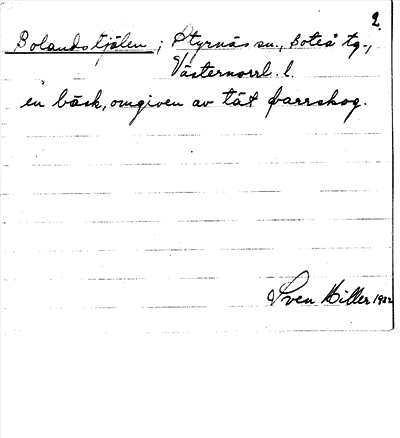 2.
Bolandstjälen ; Styrnäs sn., Boteå tg.,
Västernorrl. l.
en bäck, omgiven av tät barrskog.
Sven Hiller 1932